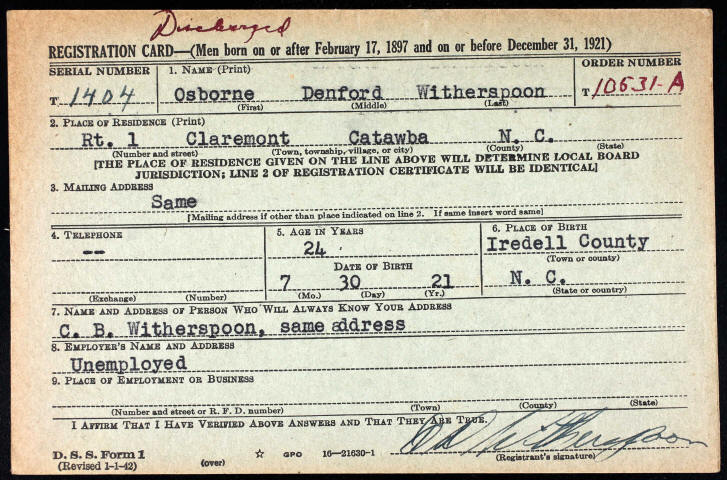 Discharged
REGISTRATION CARD—(Men born on or after February 17, 1897 and on or before December 31, 1921)
SERIAL NUMBER 1. NAME (Print) ORDER NUMBER
T 1404 Osborne Denford Witherspoon T 10631-A
(First) (Middle) (Last)
2. PLACE OF RESIDENCE (Print)
Rt. 1 Claremont Catawba N. C.
(Number and street) (Town, township, village, or city) (County) (State)
[THE PLACE OF RESIDENCE GIVEN ON THE LINE ABOVE WILL DETERMINE LOCAL BOARD
JURISDICTION; LINE 2 OF REGISTRATION CERTIFICATE WILL BE IDENTICAL]
3. MAILING ADDRESS
Same
[Mailing address if other than place indicated on line 2. If same insert word same]
4. TELEPHONE 5. AGE IN YEARS 6. PLACE OF BIRTH
-- 24 Iredell County
DATE OF BIRTH (Town or county)
7 30 21 N. C.
(Exchange) (Number) (Mo.) (Day) (Yr.) (State or country)
7. NAME AND ADDRESS OF PERSON WHO WILL ALWAYS KNOW YOUR ADDRESS
C. B. Witherspoon, same address
8. EMPLOYER'S NAME AND ADDRESS
Unemployed
9. PLACE OF EMPLOYMENT OR BUSINESS
(Number and street or R. F. D. number) (Town) (County) (State)
I AFFIRM THAT I HAVE VERIFIED ABOVE ANSWERS AND THAT THEY ARE TRUE.
O D Witherspoon
D. S. S. Form 1
(Revised 1-1-42) (over) ☆ GPO 16—21630-1 (Registrant's signature)